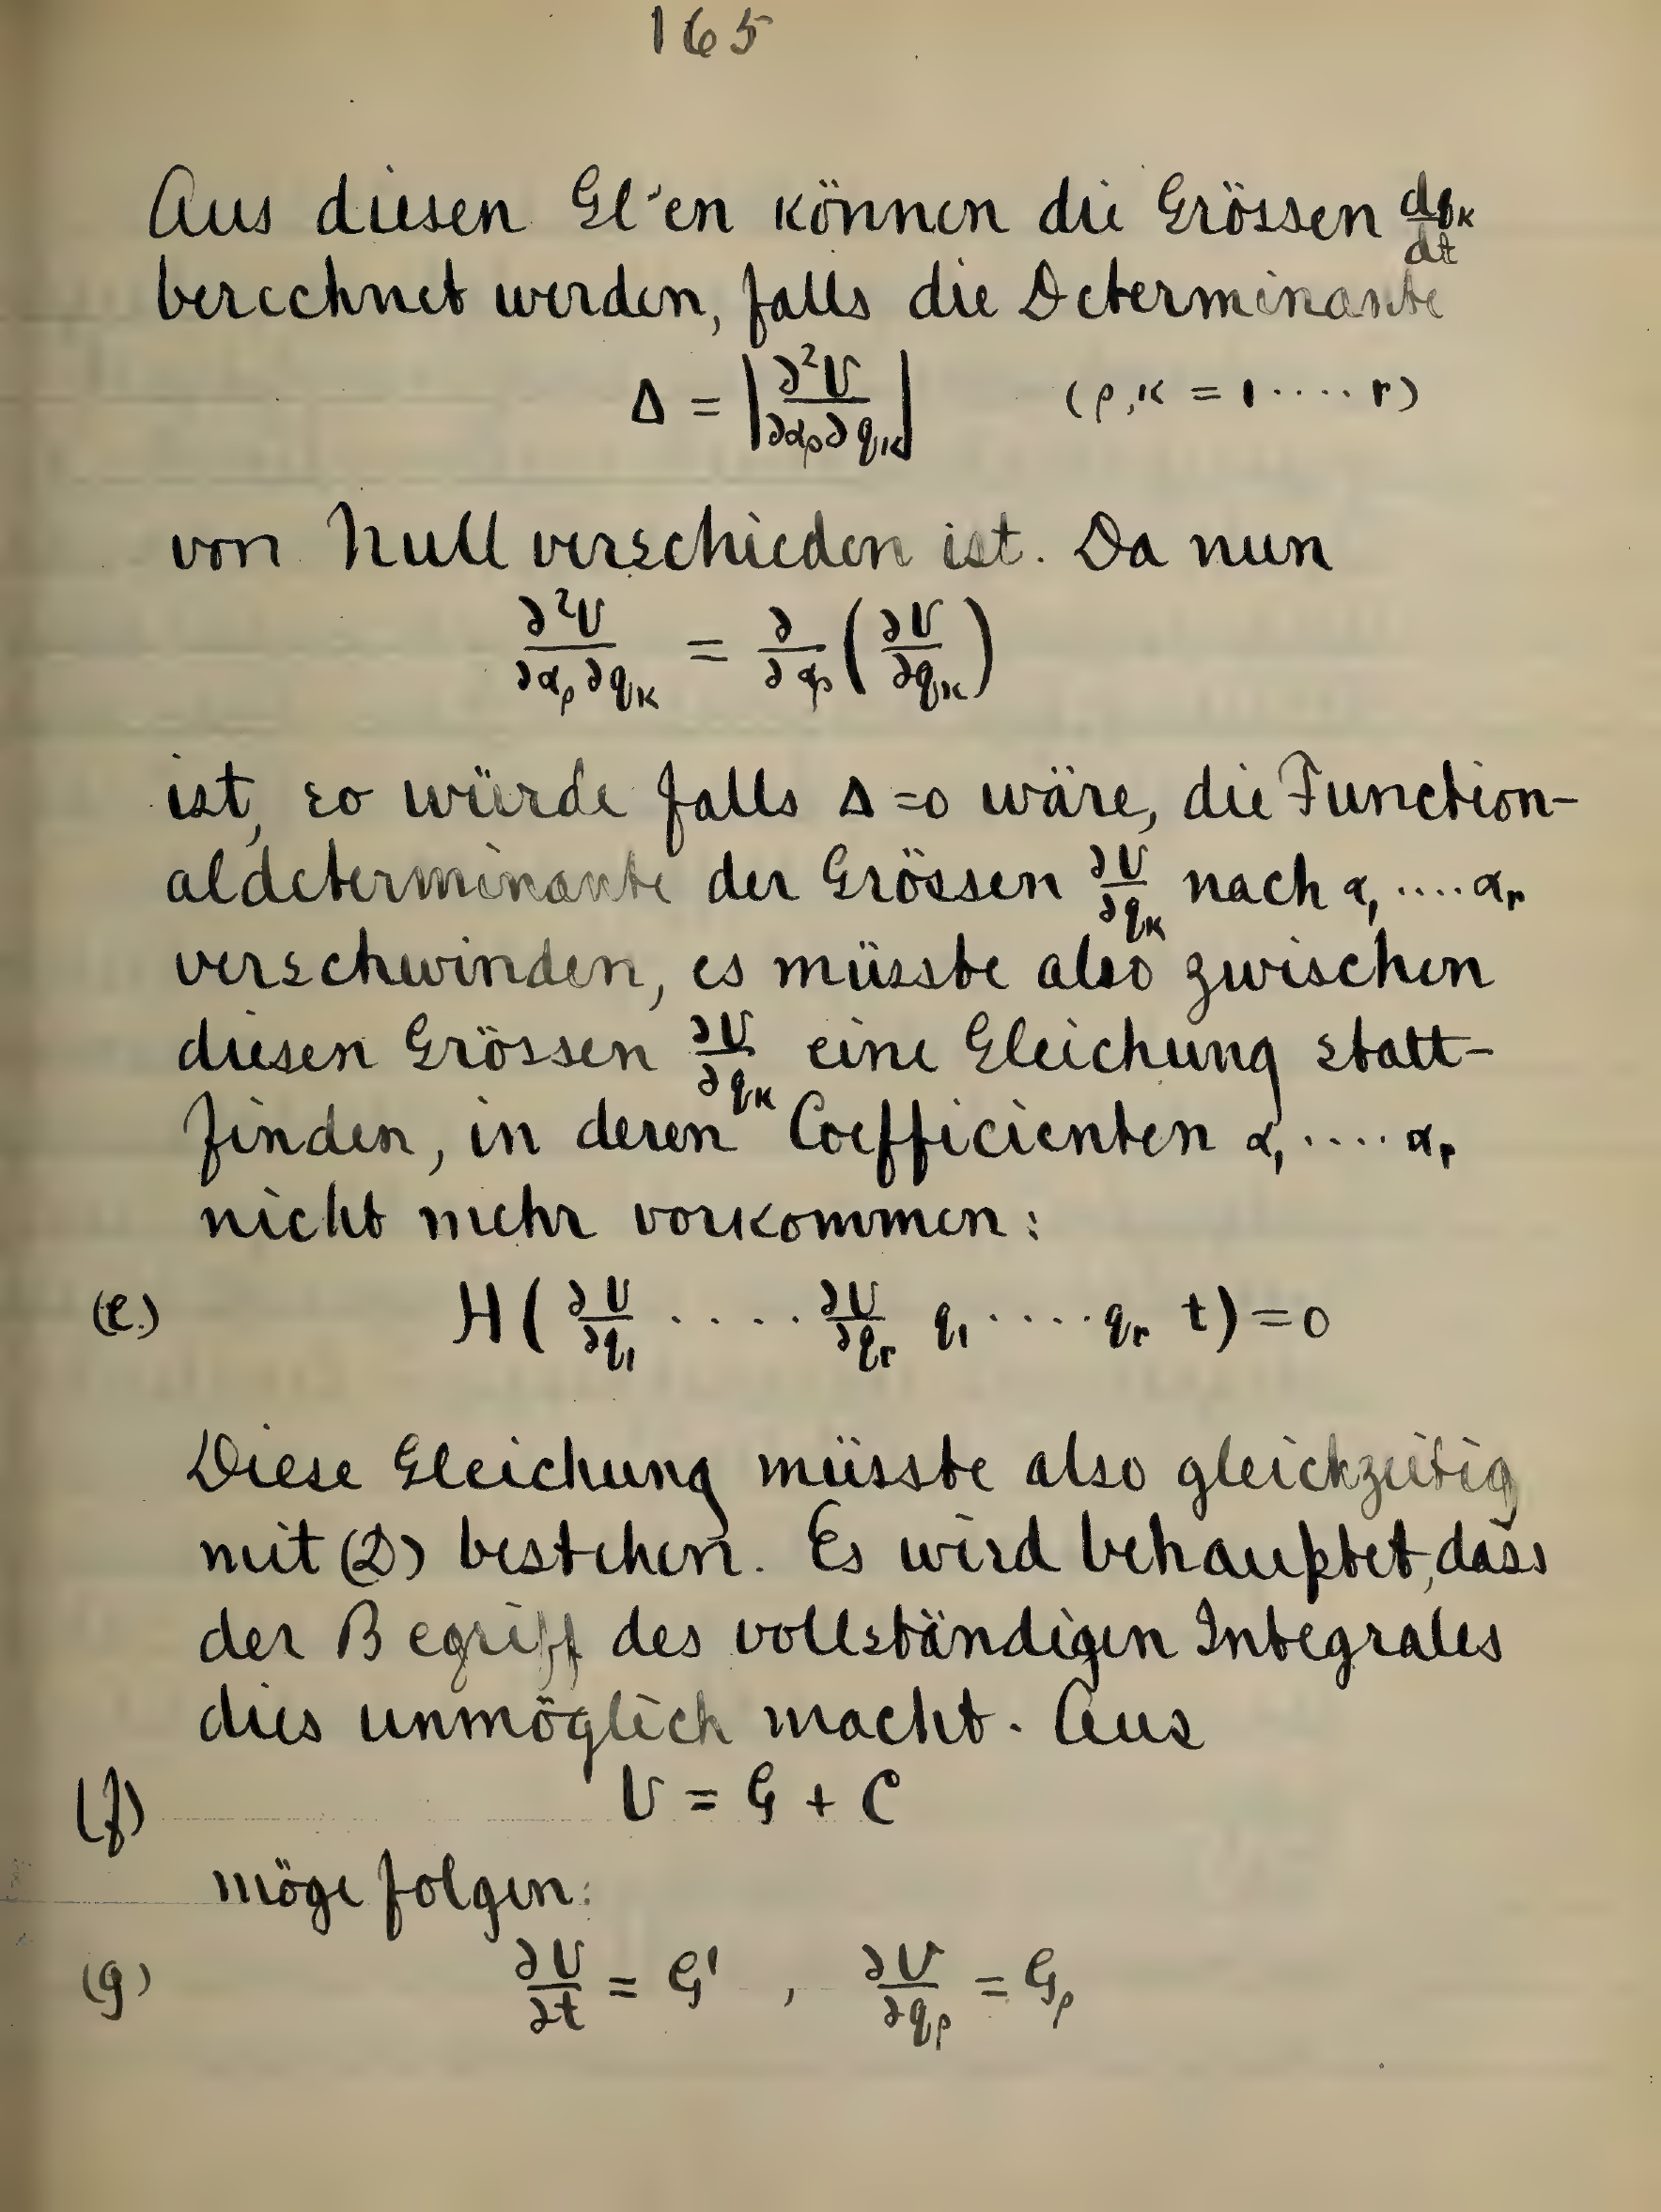 165
Aus diesen Gl'en können die Grössen dqκ/dt
berechnet werden, falls die Determinante
Δ = |∂²U/∂αρ∂qκ| (ρ,κ = 1 ···· r)
von Null verschieden ist. Da nun
∂²U/∂αρ∂qκ = ∂/∂αρ (∂U/∂qκ)
ist, so würde falls Δ = 0 wäre, die Function-
aldeterminante der Grössen ∂U/∂qκ nach α₁ ···· αr
verschwinden, es müsste also zwischen
diesen Grössen ∂U/∂qκ eine Gleichung statt-
finden, in deren Coefficienten α₁ ···· αr
nicht mehr vorkommen:
(e.) H(∂U/∂q₁ ····· ∂U/∂qr q₁ ···· qr t) = 0
Diese Gleichung müsste also gleichzeitig
mit (D) bestehen. Es wird behauptet, dass
der Begriff des vollständigen Integrales
dies unmöglich macht. Aus
(f) U = G + C
möge folgen:
(g) ∂U/∂t = G' , ∂U/∂qρ = Gρ